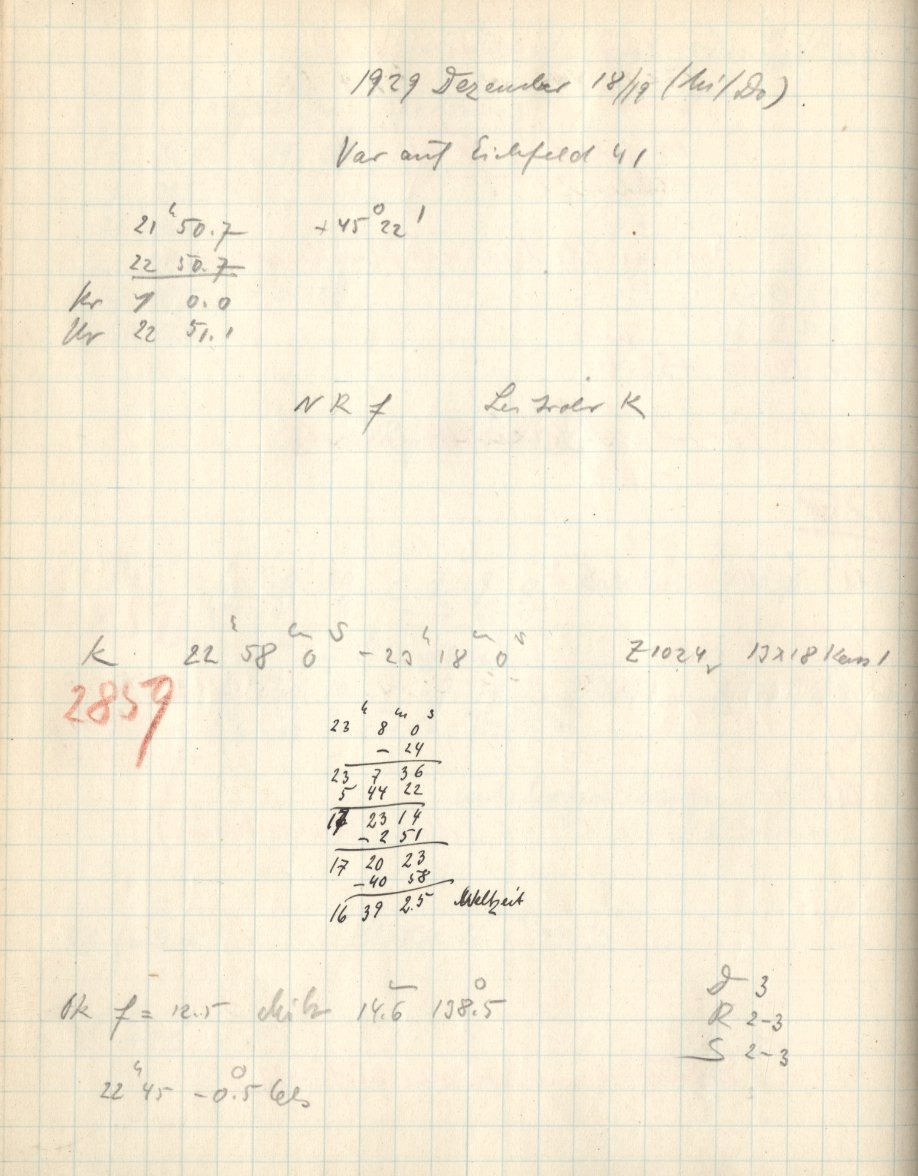 1929 Dezember 18/19 (Mi/Do)
Var auf Eichfeld 41
21ʰ 50.7 +45° 22'
22 50.7
Kr 1 0.0
Ur 22 51.1
N R f K
K 22ʰ 58ᵐ 0ˢ - 23ʰ 18ᵐ 0ˢ Z 1024, 13x18 Kass 1
2859
23ʰ 8ᵐ 0ˢ
- 24
23 7 36
5 44 22
17 23 14
- 2 51
17 20 23
- 40 58
16 39 25 Weltzeit
Ok f = 12.5 14.6 138.5
D 3
R 2-3
S 2-3
22ʰ 45 -0°.5 Cels